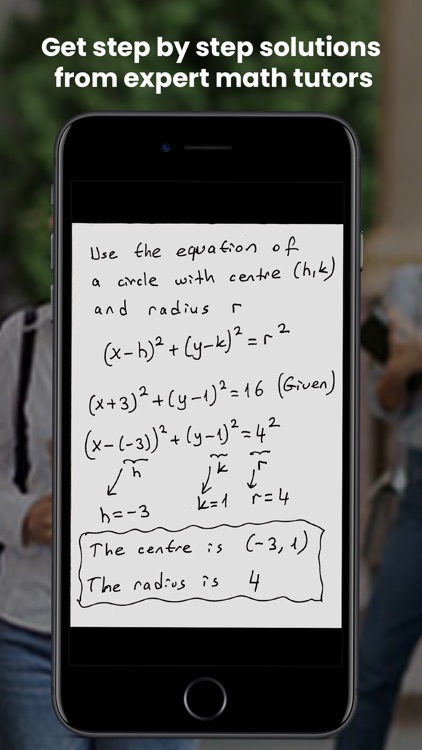 Get step by step solutions
from expert math tutors
Use the equation of
a circle with centre (h,k)
and radius r
(x-h)² + (y-k)² = r²
(x+3)² + (y-1)² = 16 (Given)
(x-(-3))² + (y-1)² = 4²
h k r
h=-3 k=1 r=4
The centre is (-3, 1)
The radius is 4